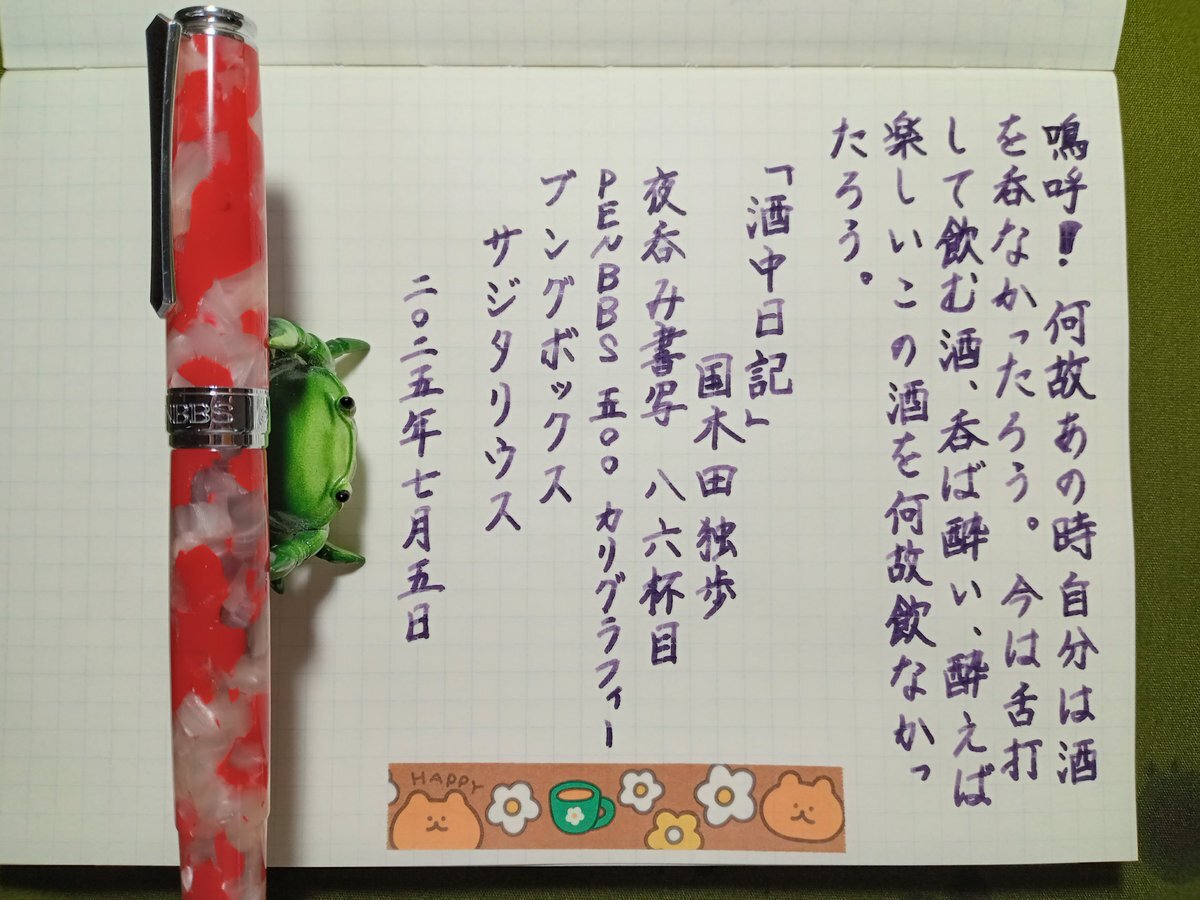 嗚呼！何故あの時自分は酒
を呑なかったろう。今は舌打
して飲む酒、呑ば酔い、酔えば
楽しいこの酒を何故飲なかっ
たろう。
「酒中日記」
国木田独歩
夜呑み書写 八六杯目
PENBBS 五〇〇 カリグラフィー
ブングボックス
サジタリウス
二〇二五年七月五日
NBBS
HAPPY